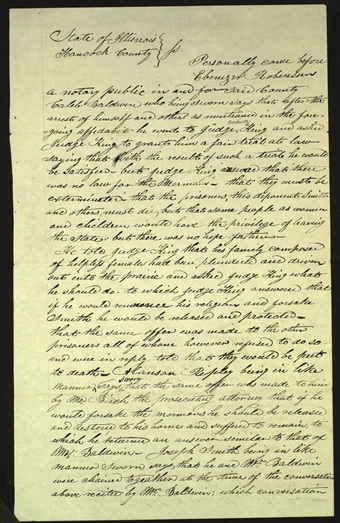 State of Illinois
Hancock County } ss.
Personally came before
Ebenezer Robinson
a notary public in and for said County
Caleb Baldwin who being sworn says that after the
arrest of himself and others as mentioned in the fore-
going affidavit he went to Judge King and asked
Judge King to grant him a fair trial at law
saying that with the result of such a trial he would
be satisfied but Judge King answered that there
was no law for the Mormons – that they must be
exterminated – that the prisoners this deponent Smith
and others must die but that some people as women
and children would have the privilege of leaving
the State, but there was no hope for them –
He told Judge King that his family composed
of helpless females had been plundered and driven
out into the prairie and asked Judge King what
he should do – to which Judge King answered that
if he would renounce his religion and forsake
Smith he would be released and protected –
that the same offer was made to the other
prisoners all of whom however refused to do so
and were in reply told that they would be put
to death – Alanson Ripley being in like
manner sworn says that the same offer was made to him
by Mr. Birch the prosecuting attorney that if he
would forsake the mormons he should be released
and restored to his home and suffered to remain, to
which he returned an answer similar to that of
Mr Baldwin – Joseph Smith being in like
manner sworn says that he and Mr. Baldwin
were chained together at the time of the conversation
above recited by Mr. Baldwin; which conversation